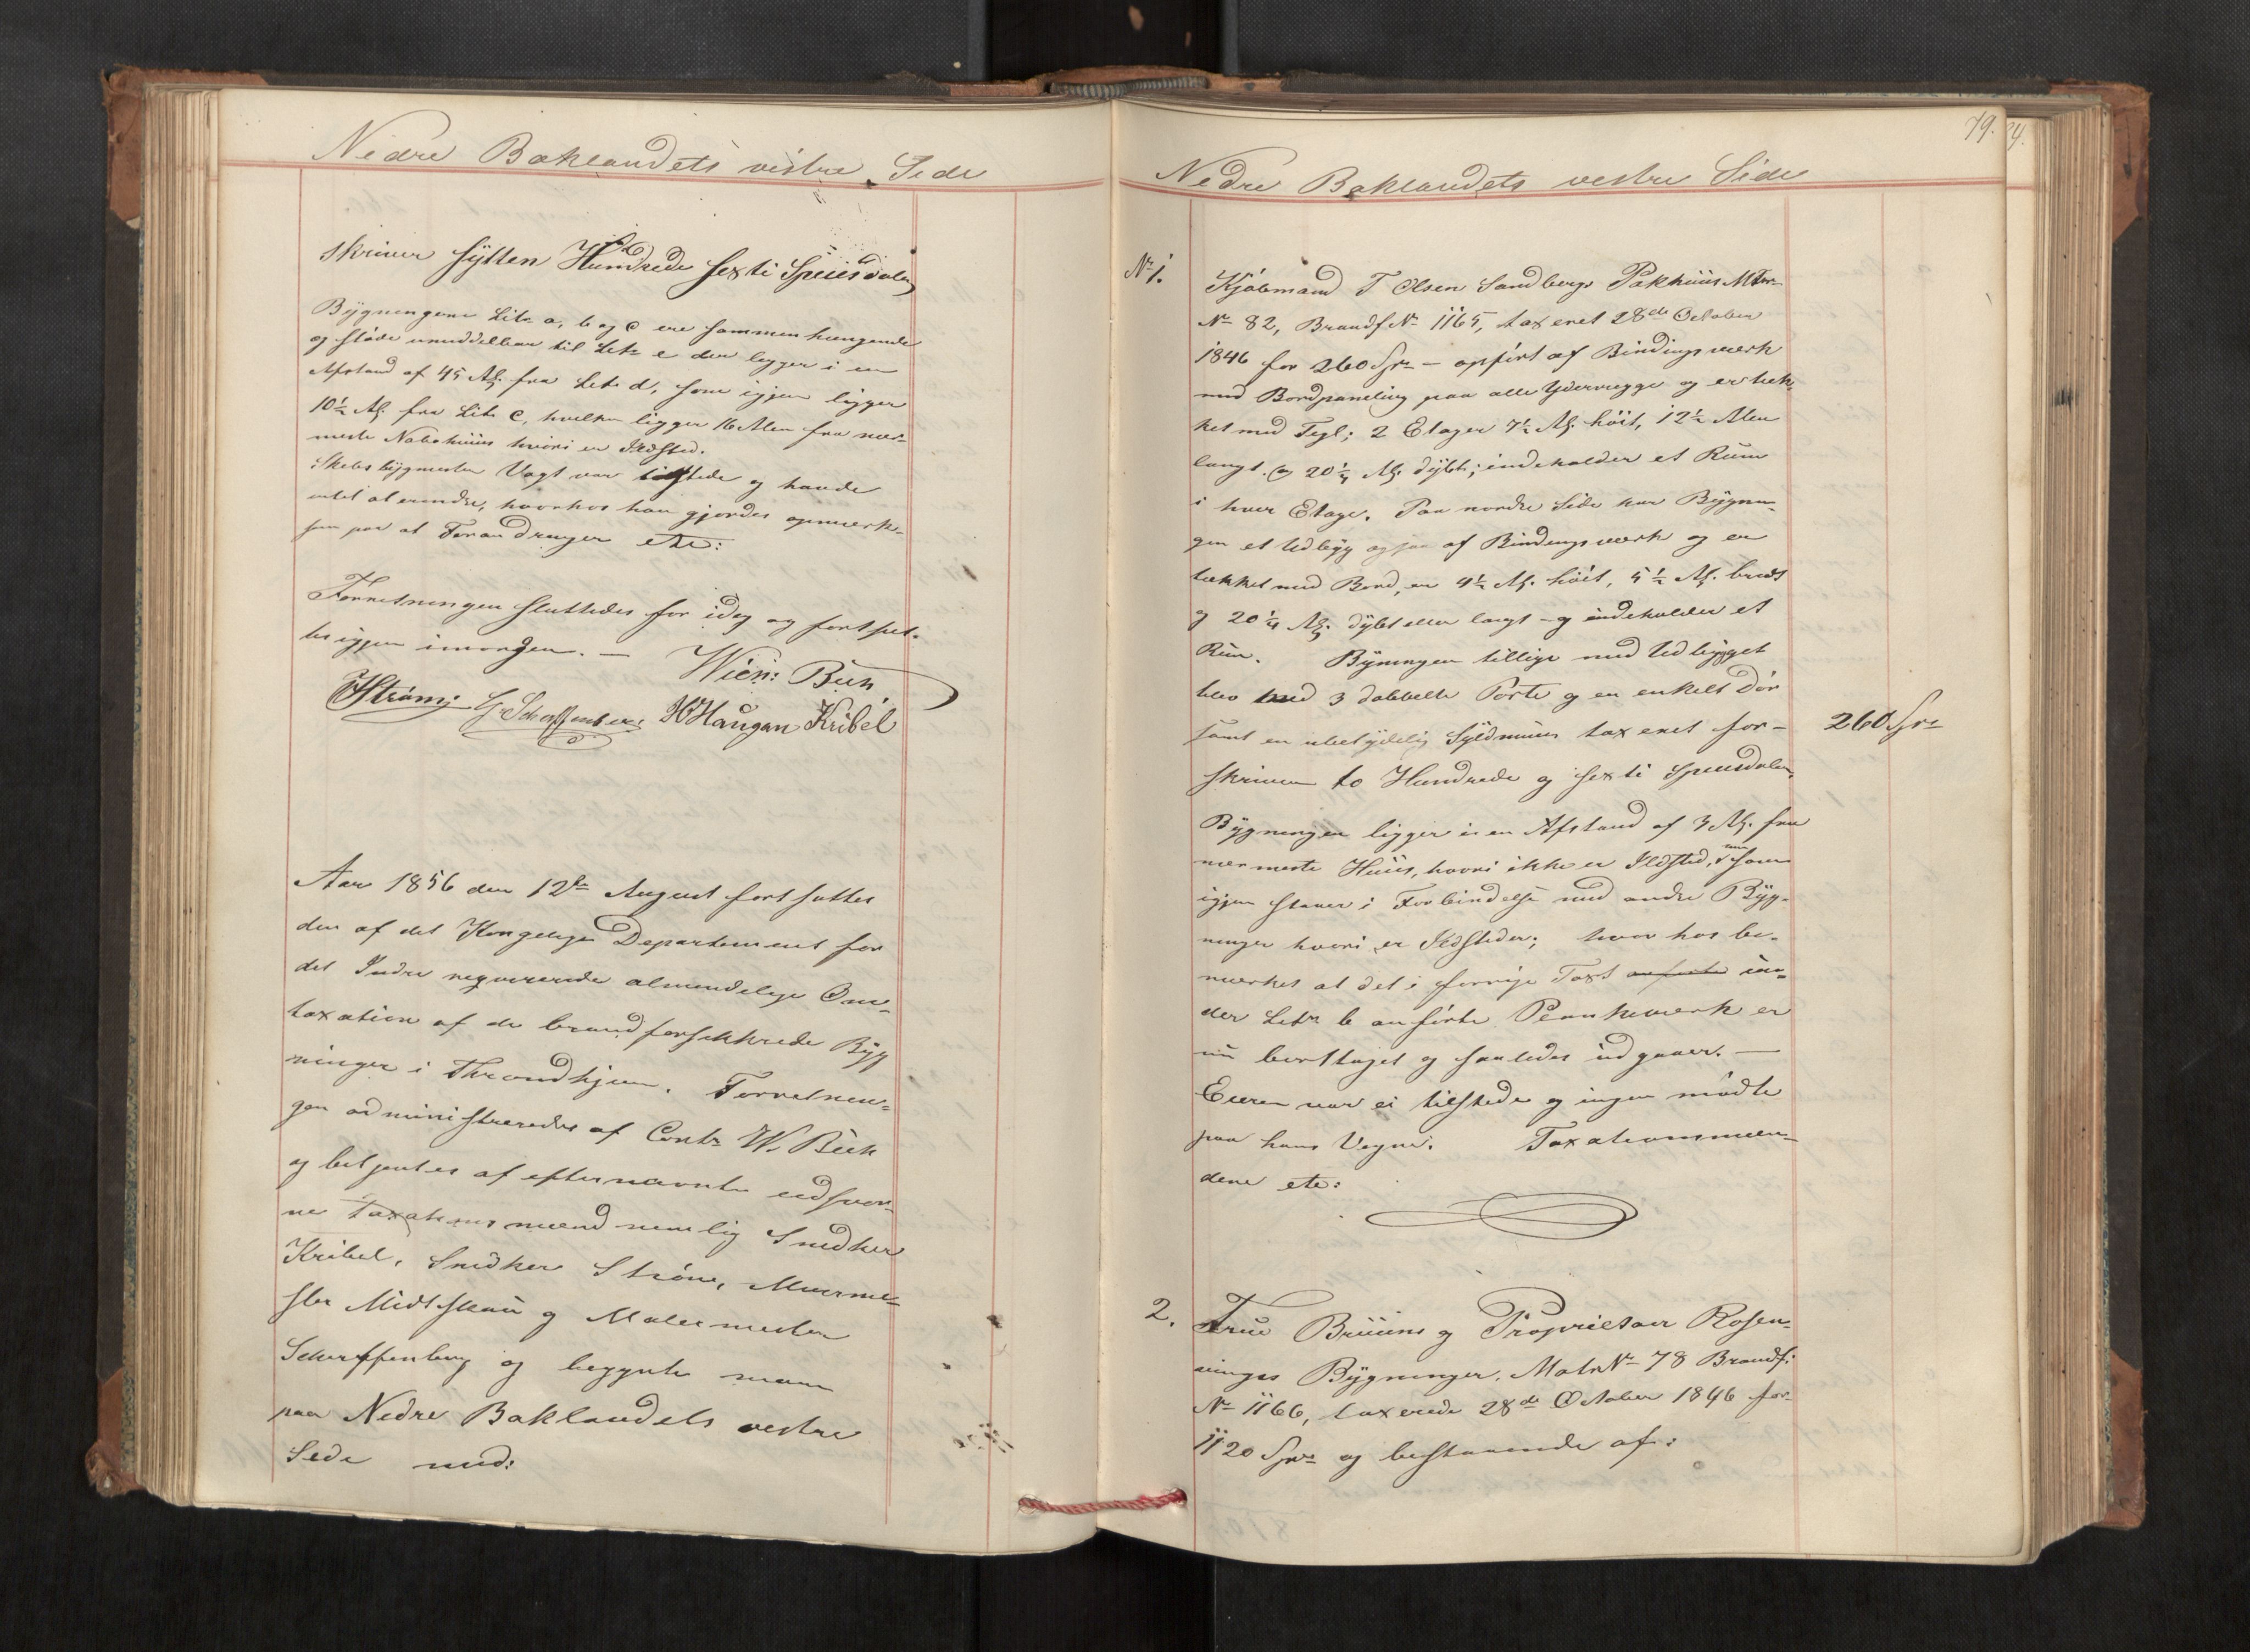 Nedre Baklandets vestre Side
skriver sÿtten Hundrede sexti Speciesdaler
Bÿgningerne Litr a, b og c ere sammenhængende
og støde umiddelbar til Litr e der ligger i en
Afstand af 45 Al. fra Litr d, som igjen ligger
10½ Al. fra Litr c, hvilken ligger 16 Alen fra nær-
meste Nabohuus hvori er Ildsted.
Skibsbÿgmester Vogt var tilstede og havde
intet at erindre, hvorhos han gjordes opmærk-
som paa at Forandringer etc:
Forretningen sluttedes for idag og fortsæt-
tes igjen imorgen. — Wien: Büch
Strøm G. Scheffenberg H Haugan Kribel
Aar 1856 den 12te August fortsattes
den af det Kongelige Departement for
det Indre reqvirerede almindelige Om-
taxation af de brandforsikkrede Bÿg
ninger i Throndhjem. Forretnin-
gen administreredes af Contr W. Büch
og betjentes af efternævnte eedsvor-
ne Taxationsmænd nemlig Snedker
Kribel, Snedker Strøm, Muurme-
ster Midtskau og Malermester
Scherffenberg og begÿnte man
paa Nedre Baklandets vestre
Side med:
79.
Nedre Baklandets vestre Side
No 1. Kjøbmand T Olsen Sandbergs Pakhuus Matr
No 82, Brandf No 1165, taxeret 28de October
1846 for 260 Spr — opført af Bindingsværk
med Bordpaneling paa alle Ydervægge og er tæk-
ket med Tegl; 2 Etager 7½ Al. høit, 12½ Alen
langt og 20¼ Al. dÿbt; indeholder et Rum
i hver Etage. Paa nordre Side har Bÿgnin-
gen et Udbÿg ogsaa af Bindingsværk og er
tækket med Bord, er 4½ Al. høit, 5½ Al. bredt
og 20¼ Al. dÿbt eller langt — og indeholder et
Rum. Bÿgningen tillige med Udbÿgget
blev med 3 dobbelte Porte og en enkelt Dør
samt en ubetÿdelig Sÿldmuur taxeret for — 260 Spr
skriver to Hundrede og sexti Speciesdaler,
Bÿgningen ligger i en Afstand af 3 Al. fra
nærmeste Huus, hvori ikke er Ildsted, men som
igjen staaer i Forbindelse med andre Bÿg-
ninger hvori er Ildsteder; hvorhos be-
mærkes at det i forrige Taxt anførte un-
der Litr b anførte Plankeværk er
nu borttaget og saaledes udgaaer. —
Eieren var ei tilstede og ingen mødte
paa hans Vegne. Taxationsmæn-
dene etc:
2. Frue Bruuns og Proprietair Rosen-
vinges Bÿgninger, Matr No 78 Brandf:
No 1166, taxerede 28de October 1846 for
1120 Spr og bestaaende af: